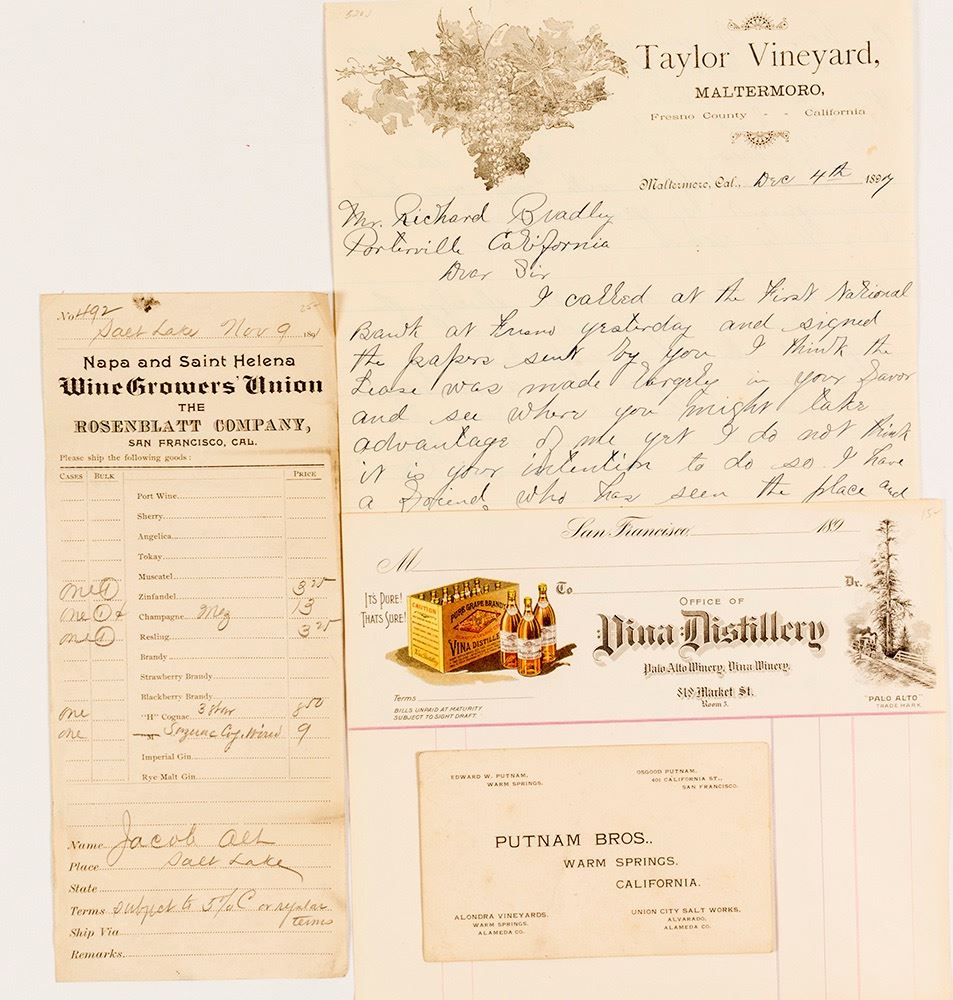 Taylor Vineyard,
MALTERMORO,
Fresno County - - California
Maltermoro, Cal., Dec 4th 1897
Mr. Richard Bradley
Porterville California
Dear Sir
I called at the First National
Bank at Fresno yesterday and signed
the papers sent by you I think the
Lease was made largely in your favor
and see where you might take
advantage of me yet I do not think
it is your intention to do so. I have
a friend who has seen the place and
No 492
25-
Salt Lake Nov 9 189
Napa and Saint Helena
Wine Growers' Union
THE
ROSENBLATT COMPANY,
SAN FRANCISCO, CAL.
Please ship the following goods:
CASES BULK PRICE
Port Wine
Sherry
Angelica
Tokay
Muscatel
one 1 Zinfandel 3 25
one 1 Champagne 13
one 1 Resling 3 25
Brandy
Strawberry Brandy
Blackberry Brandy
one "H" Cognac 3 Star 8 50
one 9
Imperial Gin
Rye Malt Gin
Name Jacob Alt
Place Salt Lake
State
Terms subject to 5% C or regular
terms
Ship Via
Remarks
15-
San Francisco 189
M
To Dr.
IT'S PURE!
THAT'S SURE!
CAUTION
PURE GRAPE BRANDY
VINA DISTILLERY
OFFICE OF
Vina Distillery
Palo Alto Winery, Vina Winery.
819 Market St.
Room 5.
Terms
BILLS UNPAID AT MATURITY
SUBJECT TO SIGHT DRAFT.
"PALO ALTO"
TRADE MARK
EDWARD W. PUTNAM,
WARM SPRINGS.
OSGOOD PUTNAM,
401 CALIFORNIA ST.,
SAN FRANCISCO.
PUTNAM BROS..
WARM SPRINGS.
CALIFORNIA.
ALONDRA VINEYARDS.
WARM SPRINGS.
ALAMEDA CO.
UNION CITY SALT WORKS.
ALVARADO,
ALAMEDA CO.